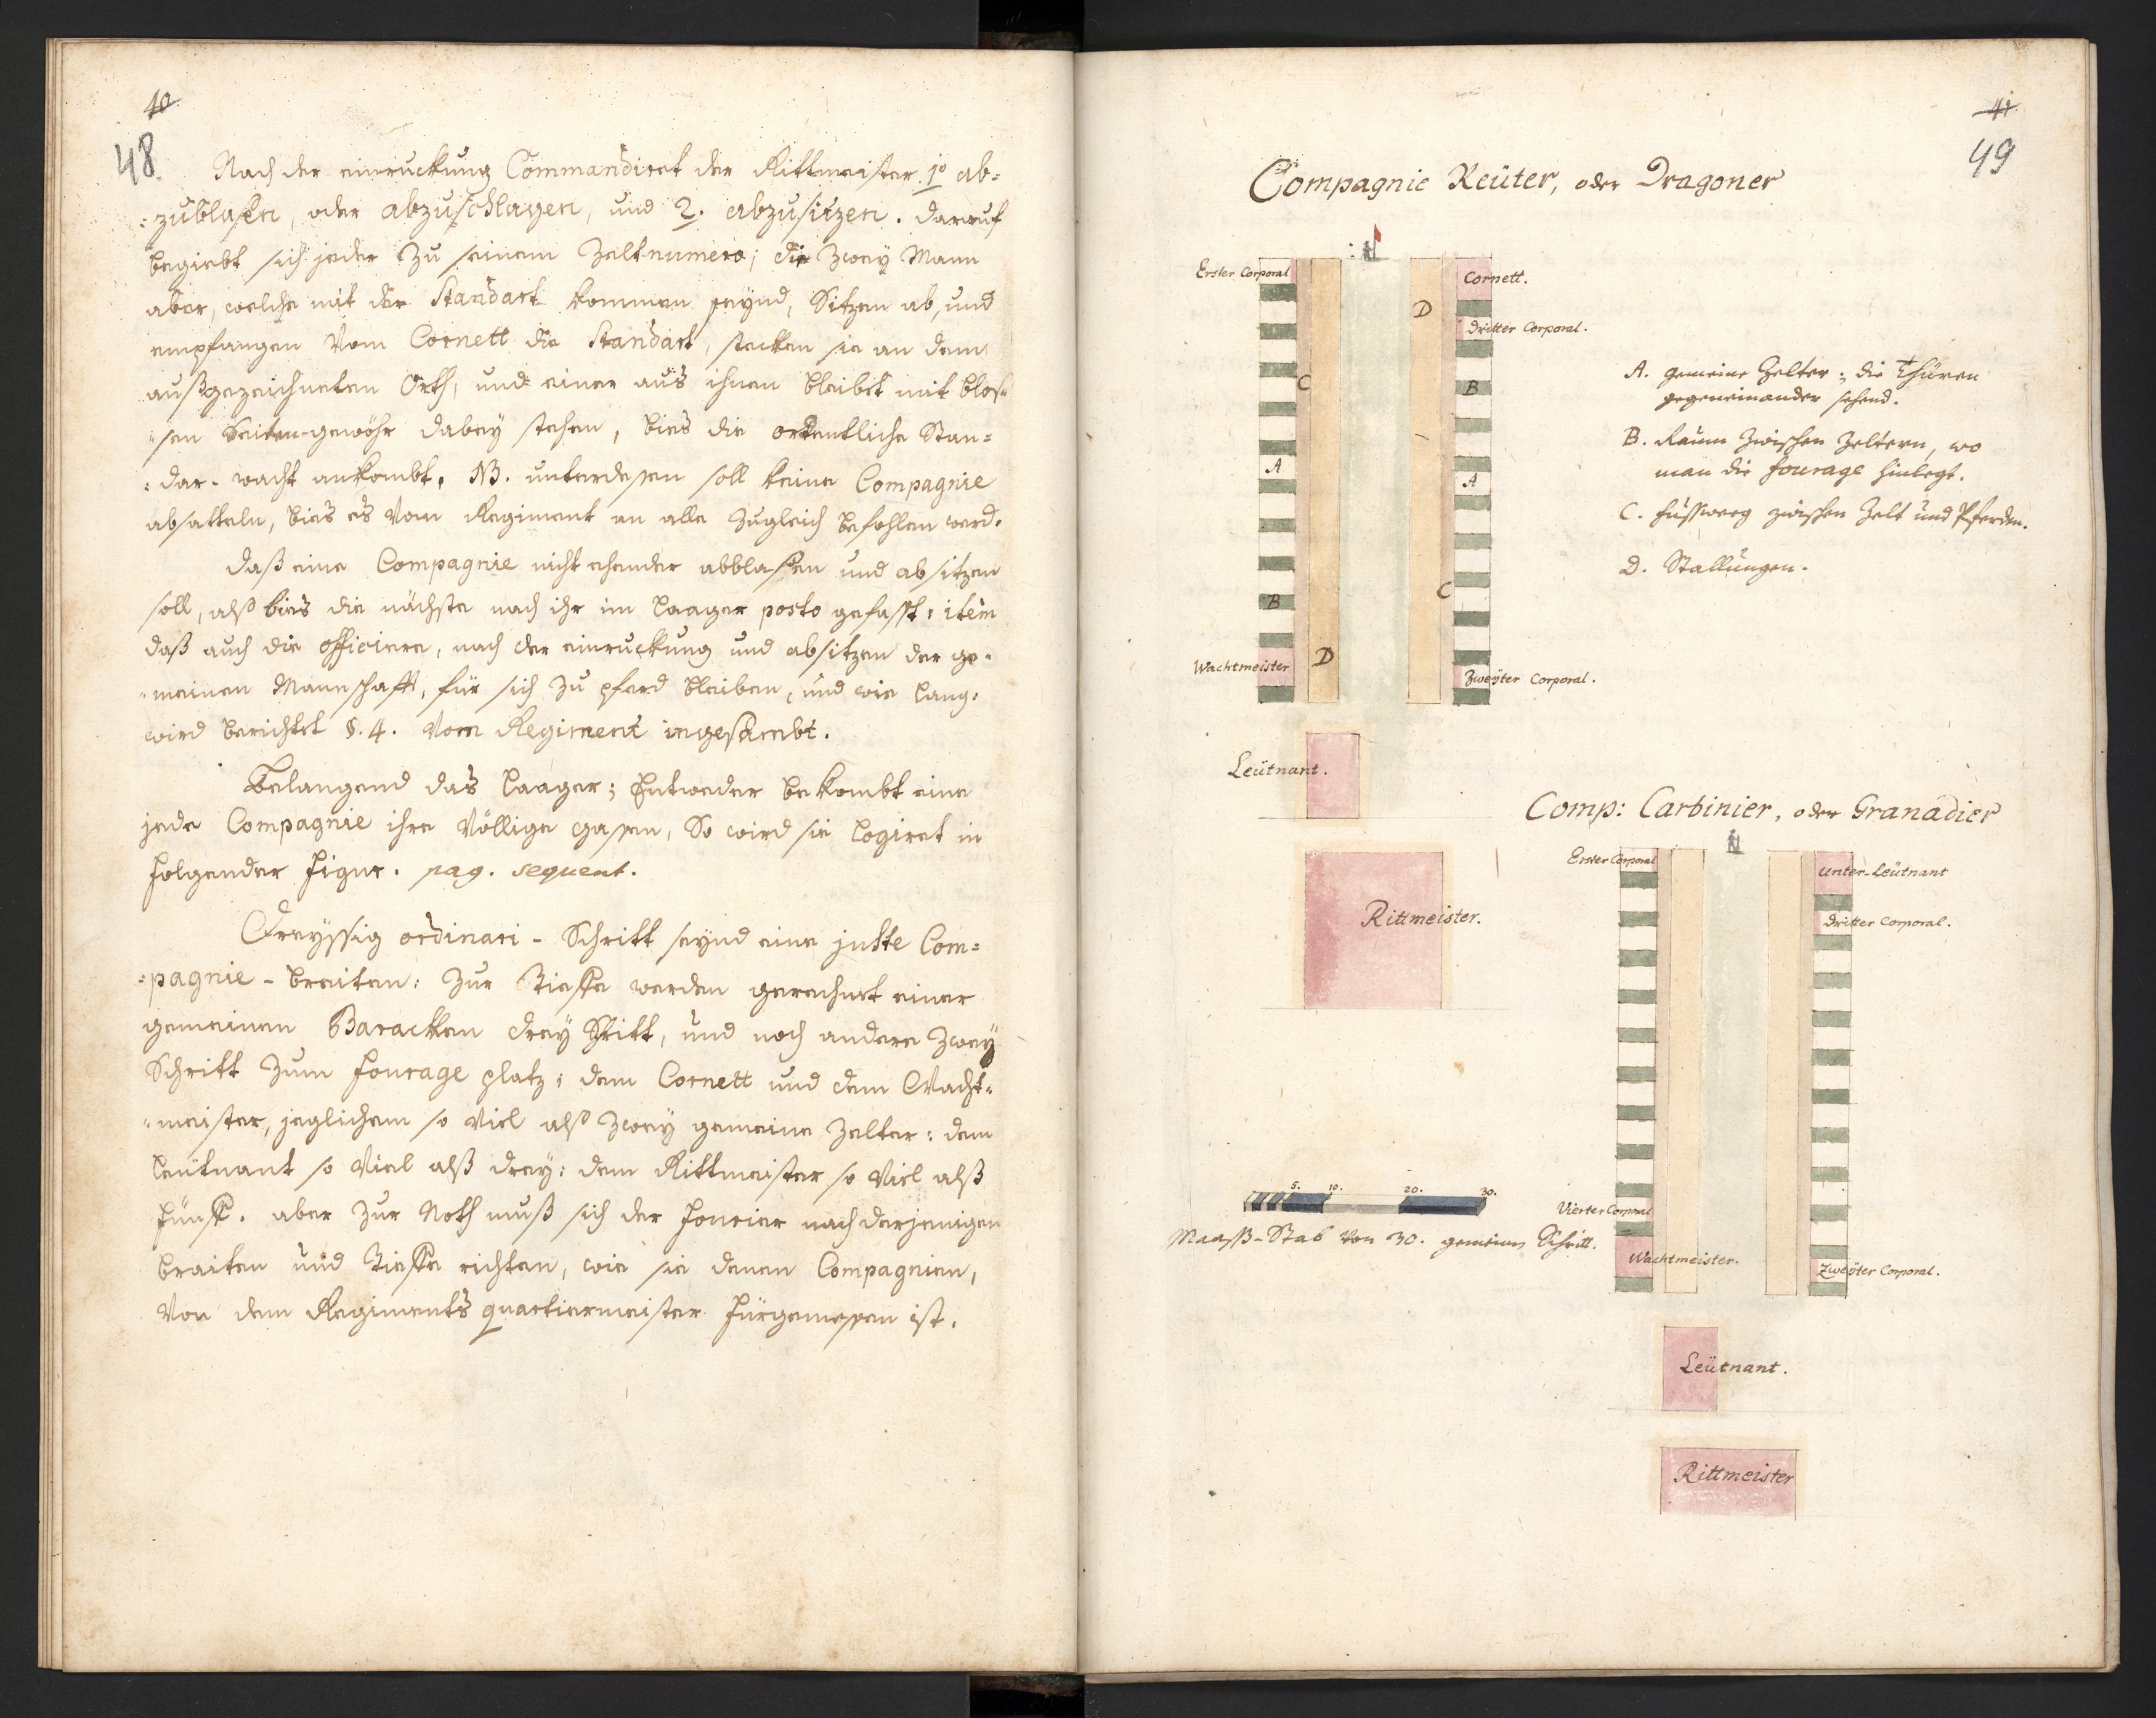 40.
48.
Nach der einruckung Commandiret der Rittmeister 1º ab=
=zublasen, oder abzuschlagen, und 2. abzusitzen. darauf
begiebt sich jeder zu seinem Zeltnumero; die zwey Mann
aber, welche mit der Standart kommen seynd, sitzen ab, und
empfangen Vom Cornett die Standart, stecken sie an dem
außgezeichneten Orth, und einer aus ihnen bleibet mit blos=
=sen Seiten-gewöhr dabey stehen, bies die ordentliche Stan=
=dar-wacht ankombt. NB. unterdessen soll keine Compagnie
absatteln, bies es Vom Regiment an alle zugleich befohlen werd.
Daß eine Compagnie nicht ehender abblasen und absitzen
soll, alß bies die nächste nach ihr im Laager posto gefasst: item
daß auch die officiere, nach der einruckung und absitzen der ge=
=meinen Mannschafft, für sich zu pferd bleiben, und wie lang:
wird berichtet §. 4. Vom Regiment ingesambt.
Belangend das Laager; Entweder bekombt eine
jede Compagnie ihre Völlige gassen, So wird sie logiret in
folgender figur. pag. sequent.
Dreyssig ordinari-Schritt seynd eine juste Com=
=pagnie-breiten: Zur Tieffe werden gerechnet einer
gemeinen Baracken drey Schritt, und noch andere zwey
Schritt zum fourage platz; dem Cornett und dem Wacht=
=meister, jeglichem so Viel alß zwey gemeine Zelter: dem
Leütnant so Viel alß drey: dem Rittmeister so Viel alß
fünff. aber zur Noth muß sich der fourier nach derjenigen
breiten und Tieffe richten, wie sie denen Compagnien,
Von dem Regiments quartiermeister fürgemessen ist.
41
49
Compagnie Reüter, oder Dragoner
Erster Corporal
Cornett.
D
dritter Corporal.
C
B
A
A
C
B
D
Wachtmeister
Zweÿter Corporal.
Leütnant.
Rittmeister.
A. gemeine Zelter: die Thüren
gegeneinander sehend.
B. Raum zwischen Zeltern, wo
man die fourage hinlegt.
C. fussweeg zwischen Zelt und Pferden.
D. Stallungen.
Comp: Carbinier, oder Granadier
Erster Corporal
unter-Leütnant
dritter Corporal.
Vierter Corporal
Wachtmeister.
Zweÿter Corporal.
Leütnant.
Rittmeister
5. 10. 20. 30.
Maaß-Stab Von 30. gemeinen Schritt.